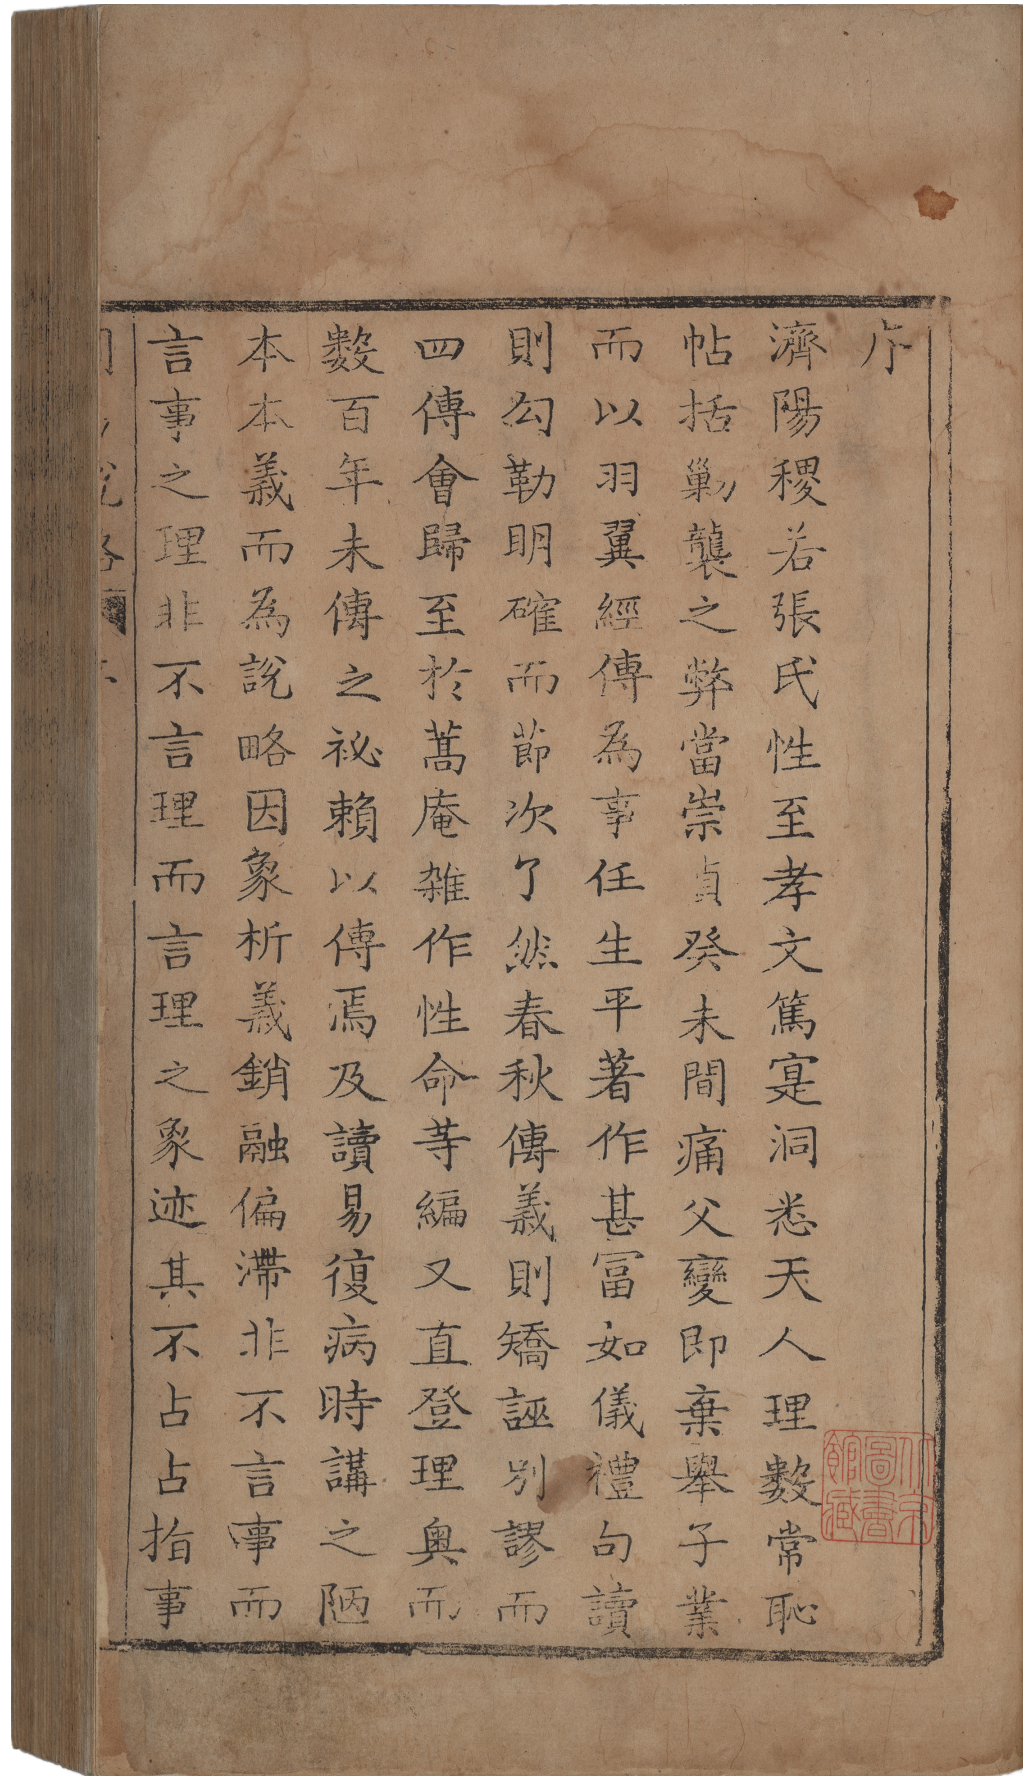 序
濟陽稷若張氏性至孝文篤寔洞悉天人理數常恥
帖括勦襲之弊當崇貞癸未間痛父變即棄舉子業
而以羽翼經傳為事任生平著作甚富如儀禮句讀
則勾勒明確而節次了然春秋傳義則矯誣別謬而
四傳會歸至於蒿庵雑作性命等編又直登理奥而
數百年未傳之祕賴以傳焉及讀易復病時講之陋
本本義而為說略因象析義銷融偏滯非不言事而
言事之理非不言理而言理之象迹其不占占指事
北京
圖書
館藏